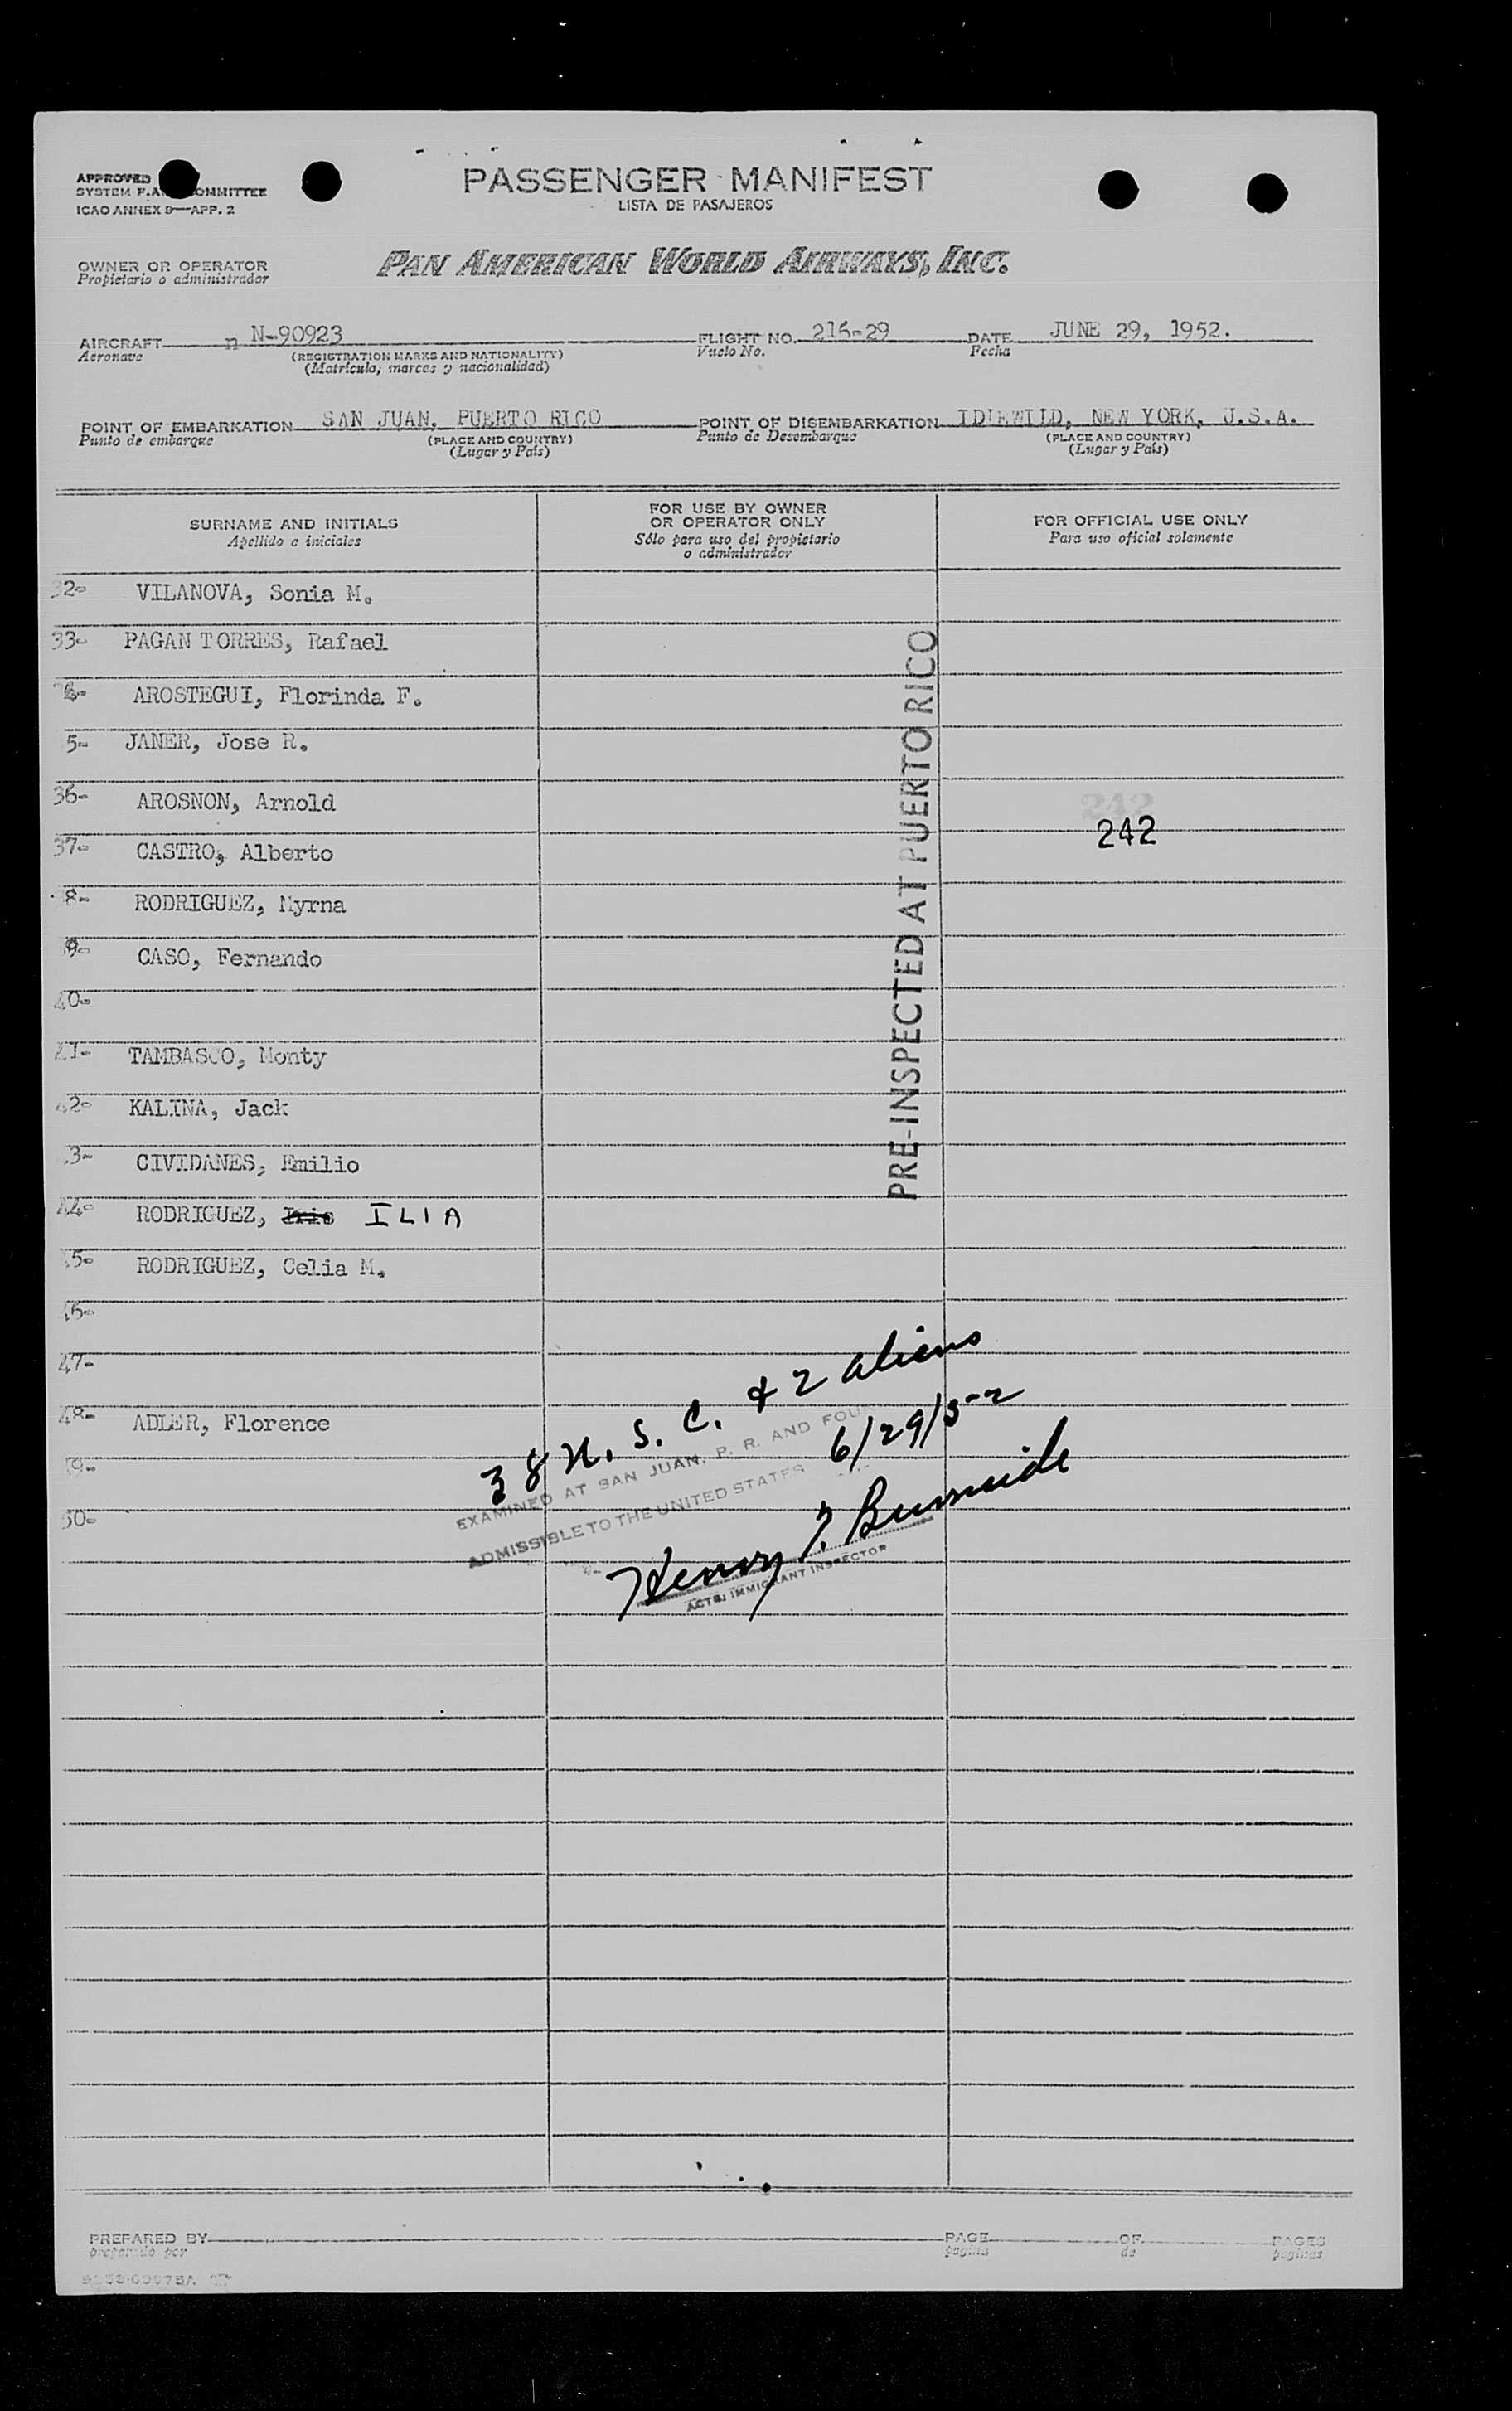 APPROVED
SYSTEM F.A. COMMITTEE
ICAO ANNEX 9—APP. 2
PASSENGER MANIFEST
LISTA DE PASAJEROS
OWNER OR OPERATOR
Propietario o administrador
PAN AMERICAN WORLD AIRWAYS, INC.
AIRCRAFT n N-90923 FLIGHT NO. 216-29 DATE JUNE 29, 1952.
Aeronave (REGISTRATION MARKS AND NATIONALITY) Vuelo No. Fecha
(Matrícula, marcas y nacionalidad)
POINT OF EMBARKATION SAN JUAN, PUERTO RICO POINT OF DISEMBARKATION IDLEWILD, NEW YORK, U.S.A.
Punto de embarque (PLACE AND COUNTRY) Punto de Desembarque (PLACE AND COUNTRY)
(Lugar y País) (Lugar y País)
SURNAME AND INITIALS
Apellido e iniciales
FOR USE BY OWNER
OR OPERATOR ONLY
Sólo para uso del propietario
o administrador
FOR OFFICIAL USE ONLY
Para uso oficial solamente
32- VILANOVA, Sonia M.
33- PAGAN TORRES, Rafael
34- AROSTEGUI, Florinda F.
5- JANER, Jose R.
36- AROSNON, Arnold
242
242
37- CASTRO, Alberto
8- RODRIGUEZ, Myrna
9- CASO, Fernando
40-
41- TAMBASCO, Monty
42- KALINA, Jack
3- CIVIDANES, Emilio
44- RODRIGUEZ, ILIA
45- RODRIGUEZ, Celia M.
46-
47-
48- ADLER, Florence
49-
50-
PRE-INSPECTED AT PUERTO RICO
38 U. S. C. & 2 aliens
EXAMINED AT SAN JUAN, P. R. AND FOUND
6/29/52
ADMISSIBLE TO THE UNITED STATES
Henry J. Burnside
ACTG. IMMIGRANT INSPECTOR
PREPARED BY PAGE OF PAGES
preparado por página de páginas